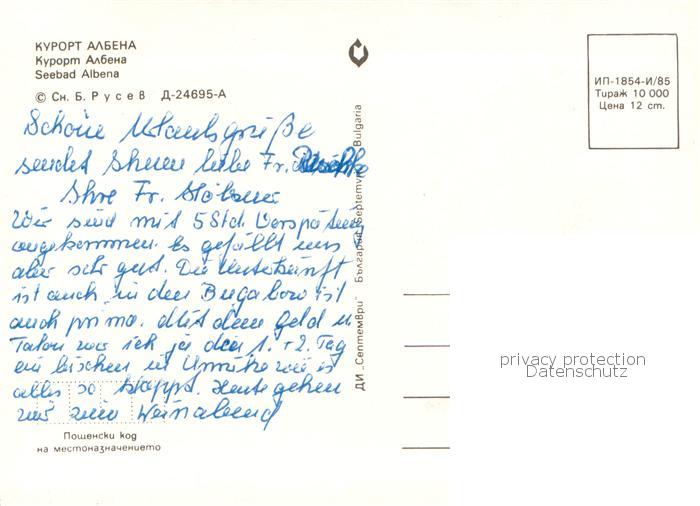 КУРОРТ АЛБЕНА
Курорт Албена
Seebad Albena
© Сн. Б. Русев Д-24695-А
Schöne Urlaubsgrüße
sendet Ihnen liebe Fr.
Ihre Fr.
Wir sind mit 5 Std. Verspätung
angekommen. Es gefällt uns
aber sehr gut. Die Unterkunft
ist auch in den Bugalow ist
auch prima. Mit dem Geld u.
Talon war ich ja den 1. + 2. Tag
ein bischen in wie es
alles so klappt. Heute gehen
wir zum Weinabend
Пощенски код
на местоназначението
ДИ „Септември" България Septemvri Bulgaria
ИП-1854-И/85
Тираж 10 000
Цена 12 ст.
privacy protection
Datenschutz